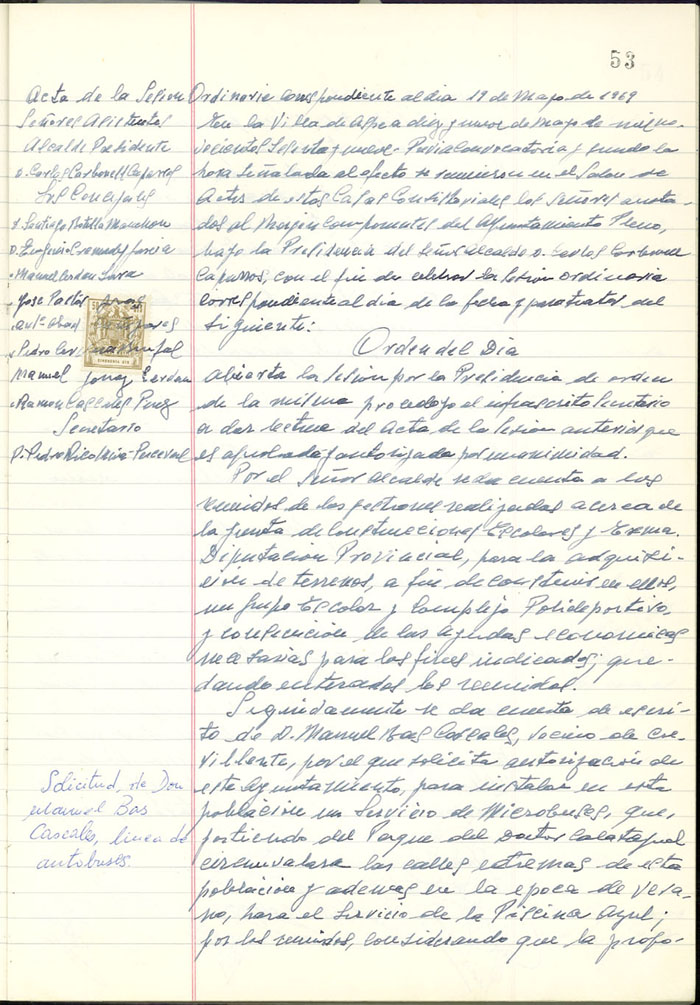 53
Acta de la Sesion Ordinaria correspondiente al dia 19 de Mayo de 1969
Señores Asistentes
Alcalde Presidente
D. Carlos Carbonell Caparros
Sres Concejales
D. Santiago Botella Manchon
D. Eugenio Cremades Garcia
Manuel Cerdan Lara
Jose Pastor
Abad
Pedro
Manuel Gomez Cerdan
Ramon Cascales Perez
Secretario
D. Pedro Rico Perceval
En la Villa de Aspe a diez y nueve de Mayo de mil no-
vecientos sesenta y nueve. Previa convocatoria y siendo la
hora señalada al efecto se reunieron en el Salon de
Actos de estas Casas Consistoriales los Señores anota-
dos al Margen componentes del Ayuntamiento Pleno,
bajo la Presidencia del Señor Alcalde D. Carlos Carbonell
Caparros, con el fin de celebrar la Sesion ordinaria
correspondiente al dia de la fecha y para tratar del
siguiente:
Orden del Dia
Abierta la Sesion por la Presidencia de orden
de la misma procedajo el infrascrito Secretario
a dar lectura del Acta de la Sesion anterior que
es aprobada y autorizada por unanimidad.
Por el Señor Alcalde se da cuenta a los
reunidos de las gestiones realizadas acerca de
la Junta de Construcciones Escolares y Excma.
Diputacion Provincial, para la adquisi-
cion de terrenos, a fin de construir en ellos,
un Grupo Escolar y Complejo Polideportivo,
y consecucion de las ayudas economicas
necesarias para los fines indicados; que-
dando enterados los reunidos.
Seguidamente se da cuenta de escri-
to de D. Manuel Bas Cascales, vecino de Cre-
villente, por el que solicita autorizacion de
este Ayuntamiento, para instalar en esta
poblacion un Servicio de Microbuses, que,
partiendo del Parque del Doctor Calatayud
circunvalara las calles extremas de esta
poblacion y ademas en la epoca de vera-
no, para el servicio de la Piscina Azul;
por los reunidos, considerando que la propo-
Solicitud, de Don
Manuel Bas
Cascales, linea de
autobuses.